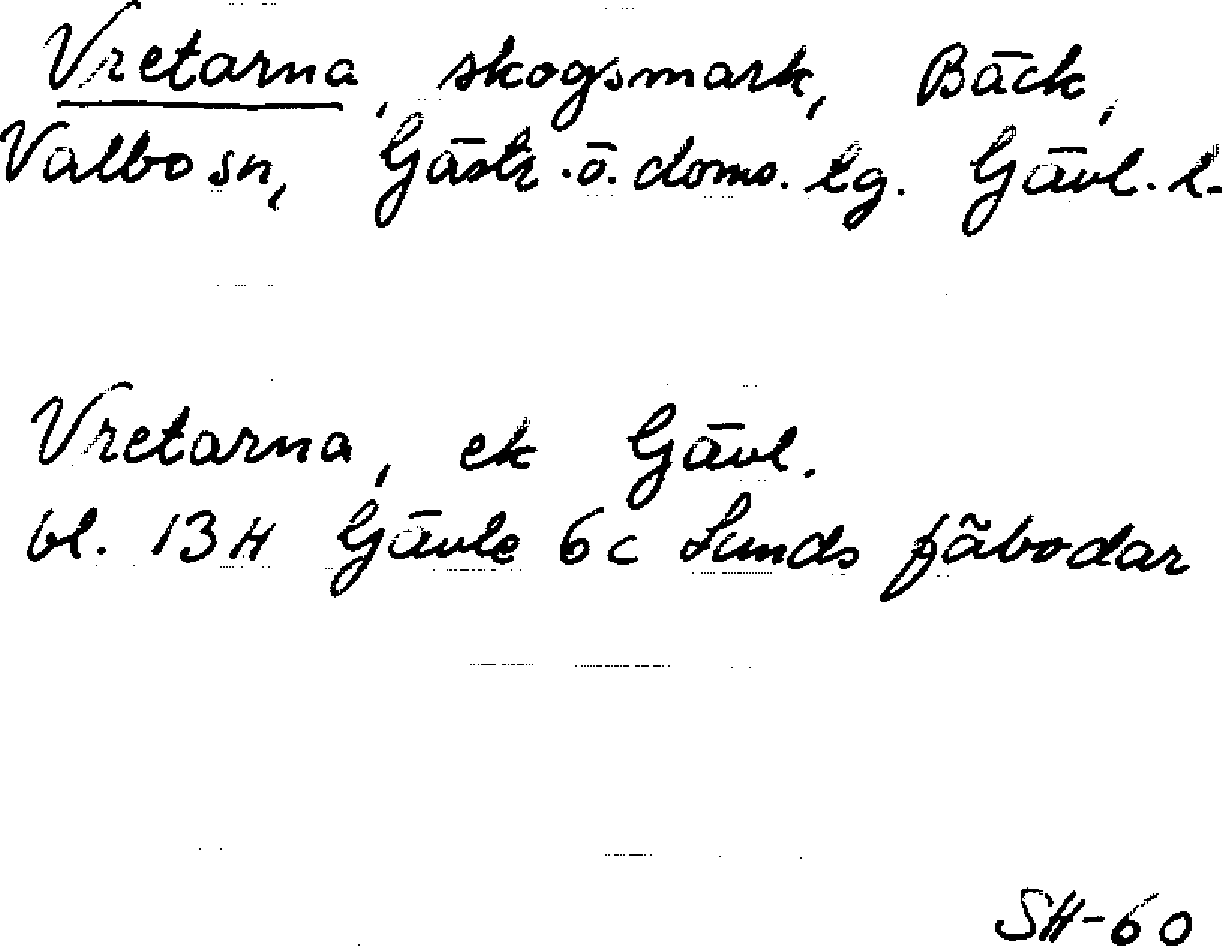 Vretarna, skogsmark, Bäck,
Valbo sn, Gästr.ö.doms.lg. Gävl.l.
Vretarna, ek Gävl.
bl. 13H Gävle 6c Lunds fäbodar
SH-60